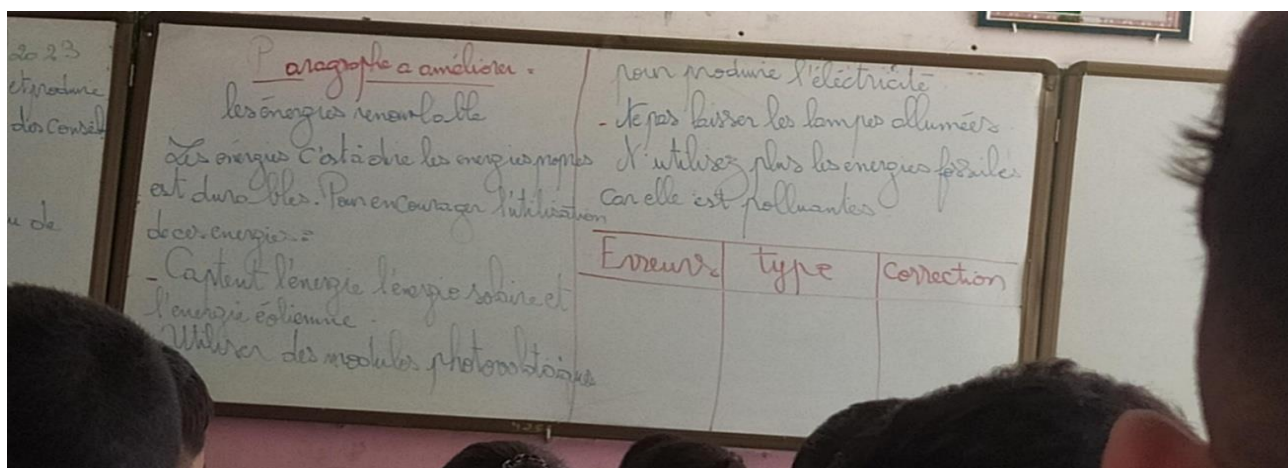 2023
et produire
des conseil
u de
Paragraphe a améliorer :
les énergies renouvlable
Les énergies c'est à dire les energies propres
est durables. Pour encourager l'utilisation
de ces energies :
- Captent l'énergie l'énergie solaire et
l'énergie éolienne.
- Utiliser des modules photovoltaiques
pour produire l'éléctricité
- Ne pas laisser les lampes allumées
N'utilisez plus les energies fossiles
car elle est polluantes
Erreurs type correction